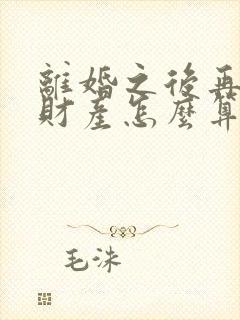 離婚之後再
財產怎麼算
毛洙